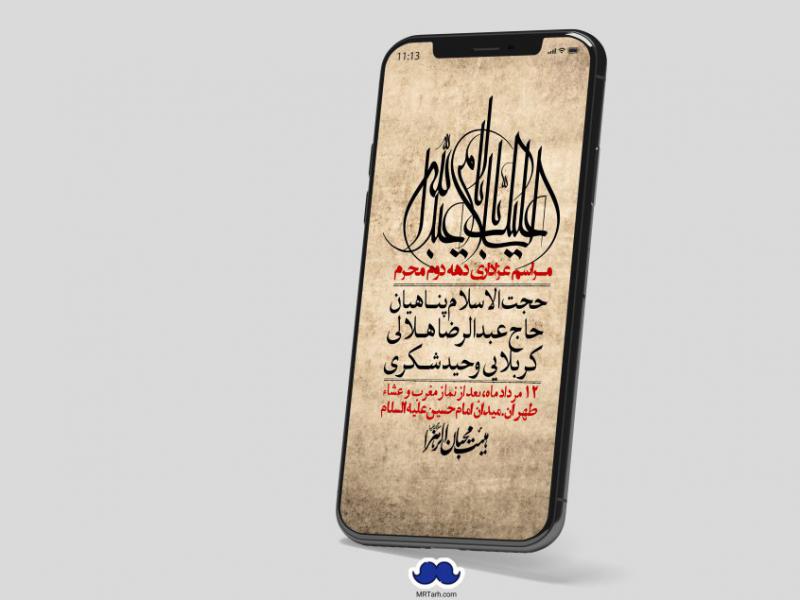 11:13
السلام علیک یا اباعبدالله
مراسم عزاداری دهه دوم محرم
حجت الاسلام پناهیان
حاج عبدالرضا هلالی
کربلایی وحید شکری
۱۲ مرداد ماه، بعد از نماز مغرب و عشاء
طهران. میدان امام حسین علیه السلام
هیئت محبان الزهرا
MRTarh.com